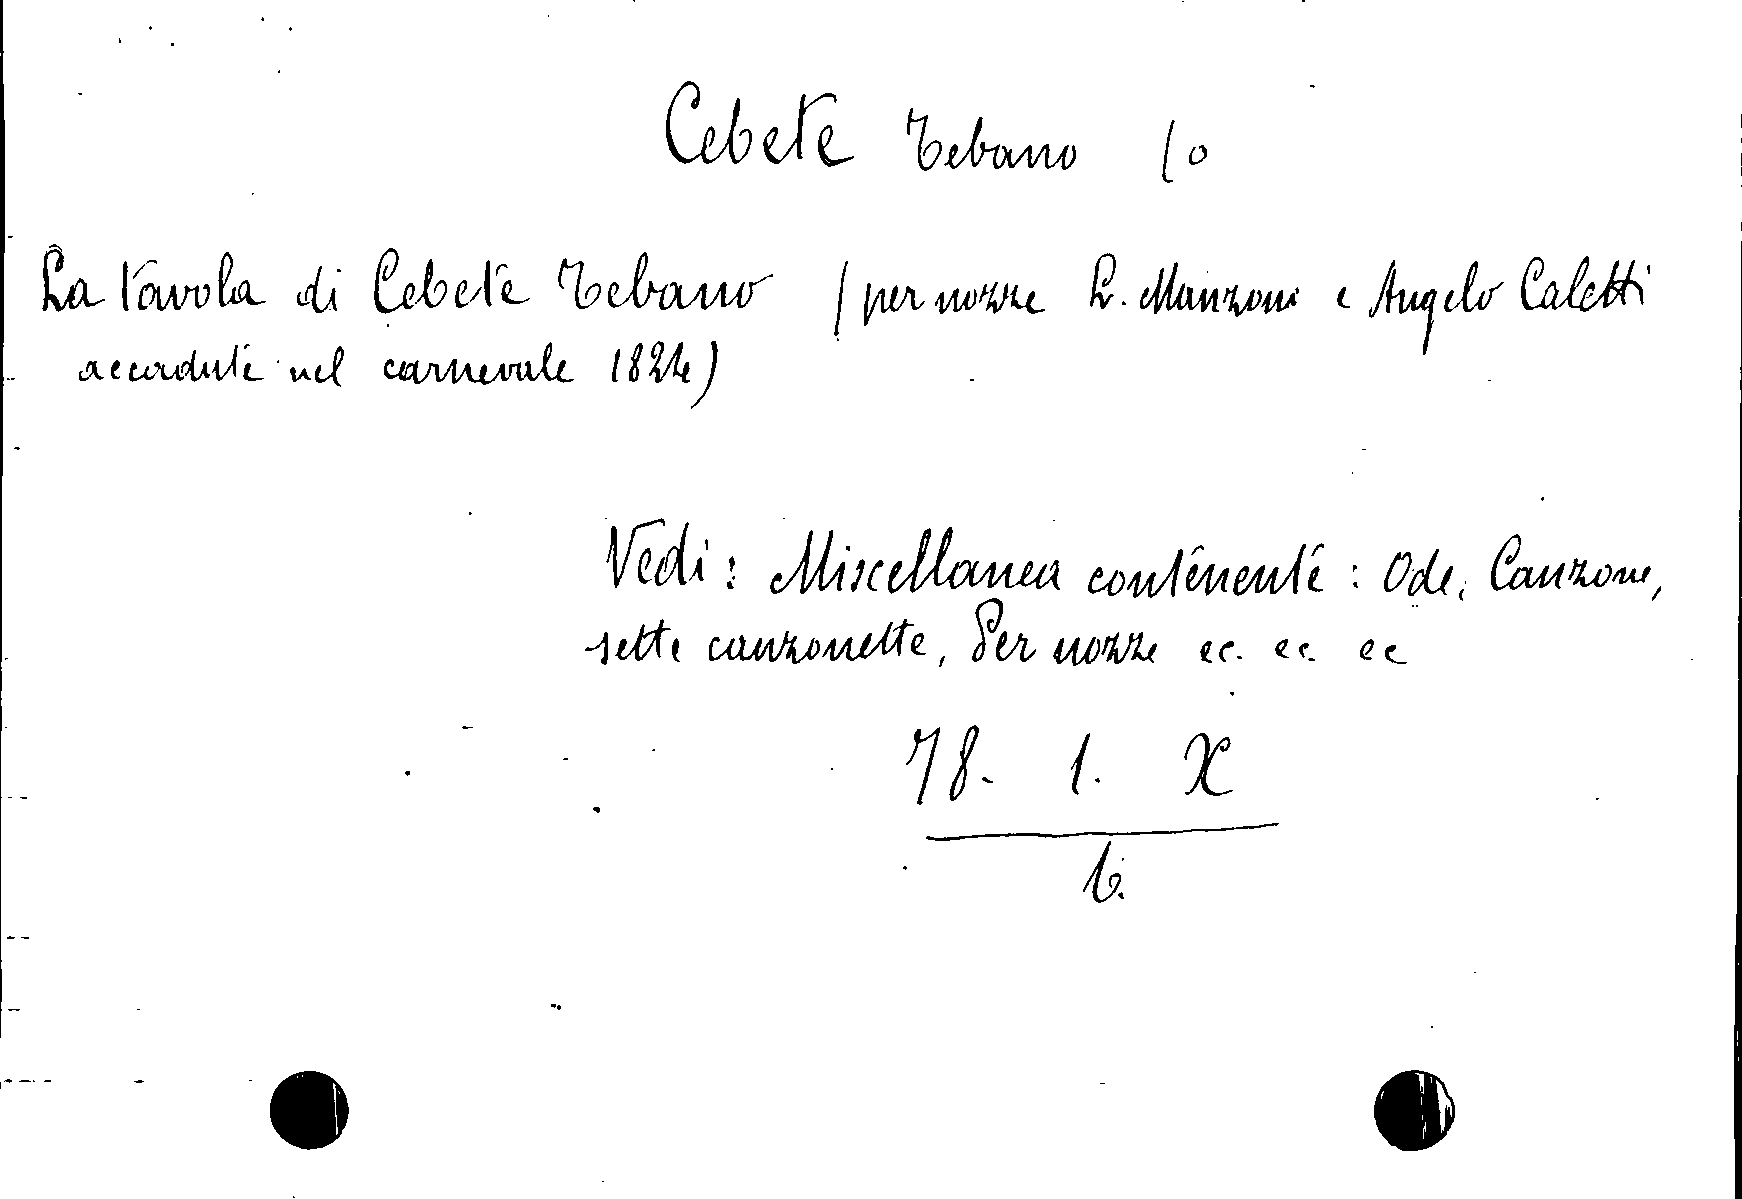 Cebete Tebano (o
La tavola di Cebete Tebano (per nozze L. Manzoni e Angelo Caletti
accadute nel carnevale 1824)
Vedi: Miscellanea contenente: Ode, Canzone,
sette canzonette, Per nozze ec. ec. ec
78. 1. X
6.